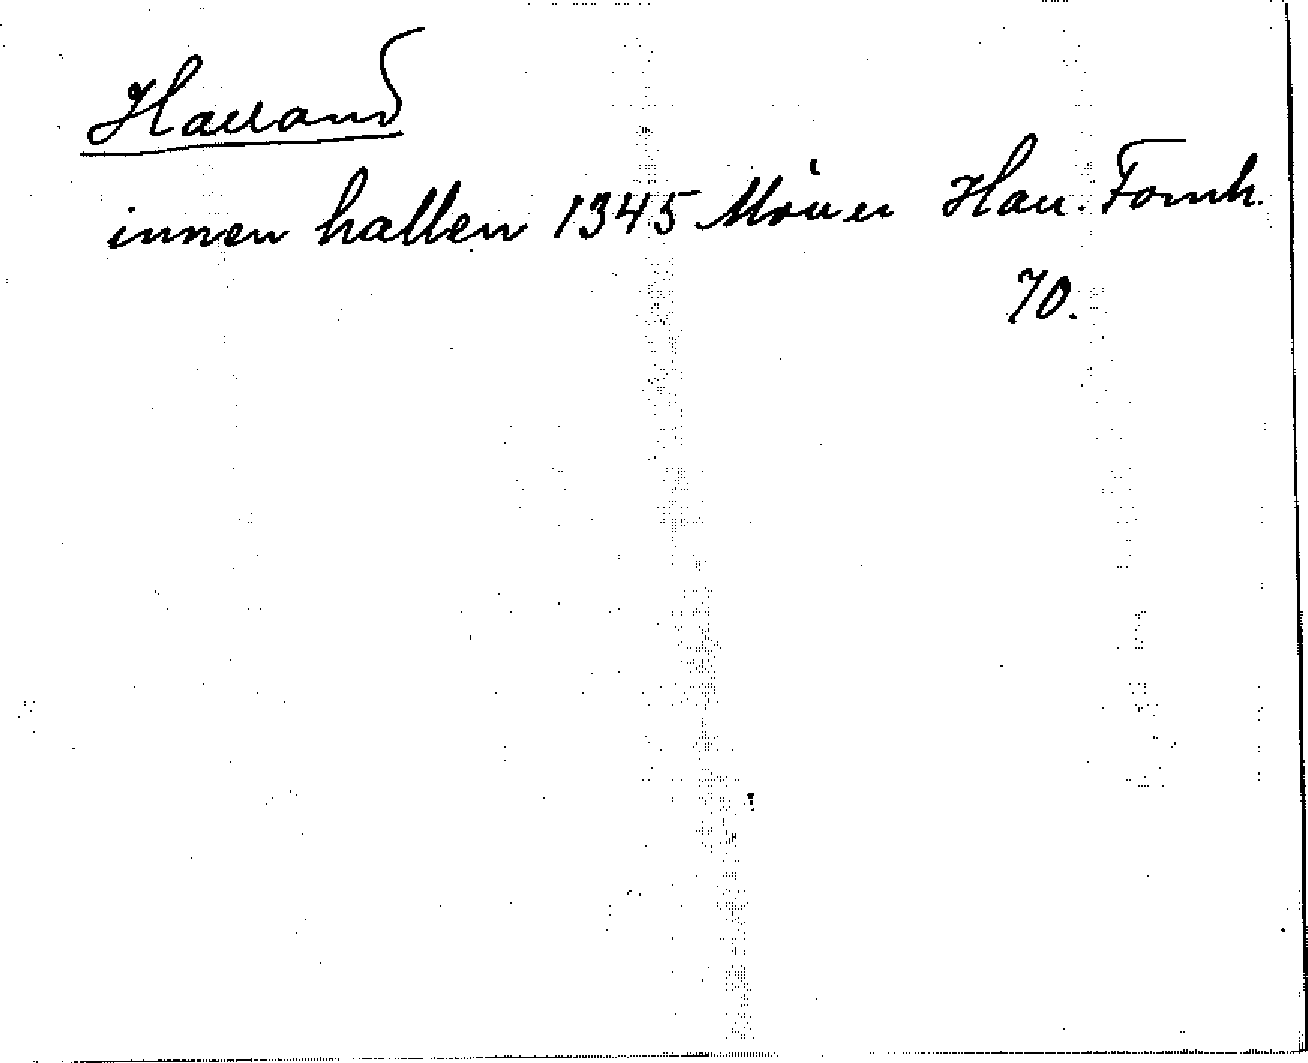 Halland
innan hallen 1345 Möller Hall. Fornh.
70.